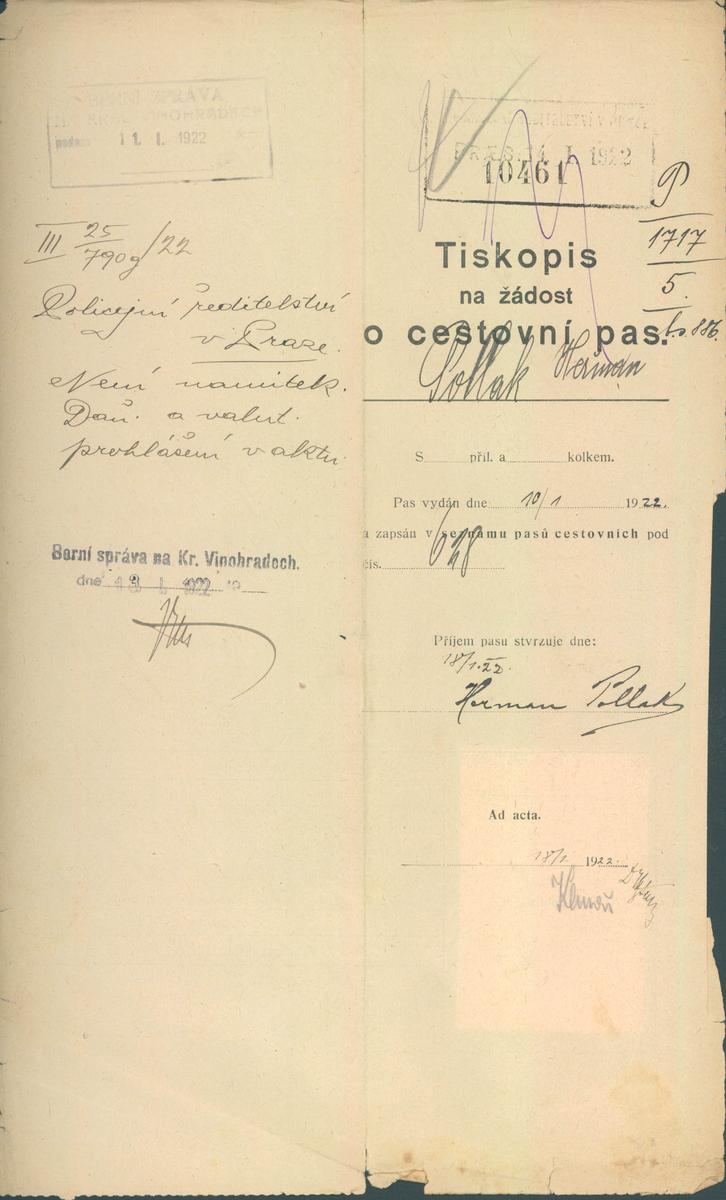 BERNÍ SPRÁVA
NA KRÁL. VINOHRADECH
podáno 11. I. 1922
III 25/790g/22
Policejní ředitelství
v Praze.
Není námitek.
Daň. a valut.
prohlášení v aktu.
Berní správa na Kr. Vinohradech.
dne 13. I. 1922 19
PRAES. 14. I. 1922
10461
P
1717
5.
Tiskopis
na žádost
o cestovní pas.
Pollak Heřman
S příl. a kolkem.
Pas vydán dne 10/1 1922.
a zapsán v seznamu pasů cestovních pod
čís. 628
Příjem pasu stvrzuje dne:
18/1.22.
Herman Pollak
Ad acta.
18/1 1922.